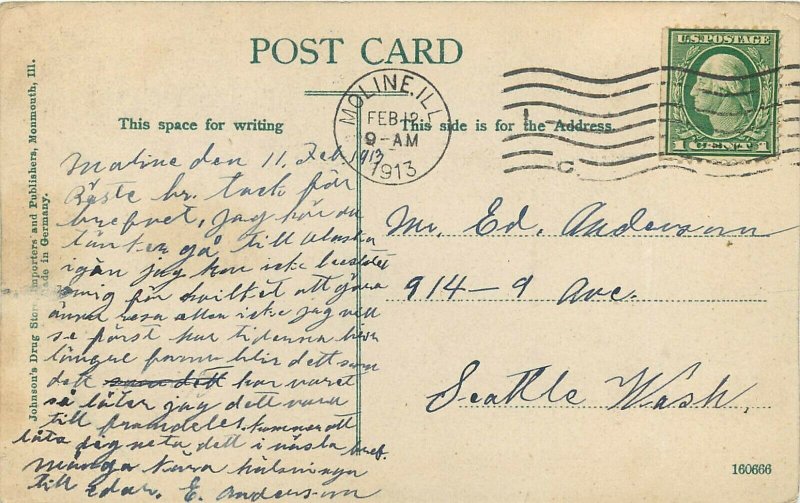 POST CARD
MOLINE, ILL.
FEB 12
9-AM
1913
U.S. POSTAGE
1 CENT 1
This space for writing
This side is for the Address.
Johnson's Drug Store, Importers and Publishers, Monmouth, Ill.
Made in Germany.
Moline den 11. Feb 1913
Bäste br. tack för
brefvet, jag hör du
tänker gå till Alaska
igän jag kan icke beslutet
mig för hvilket att göra
änu resa ellen icke jag vill
se först hur tiderna
länge blir dett som
dett som dett har varet
så låter jag dett vara
till framdeles. kommer att
låta dig veta dett i nästa bref.
Många kära hälsninga
till eder. E. Anderson
Mr. Ed. Anderson
914-9 Ave.
Seattle Wash.
160666